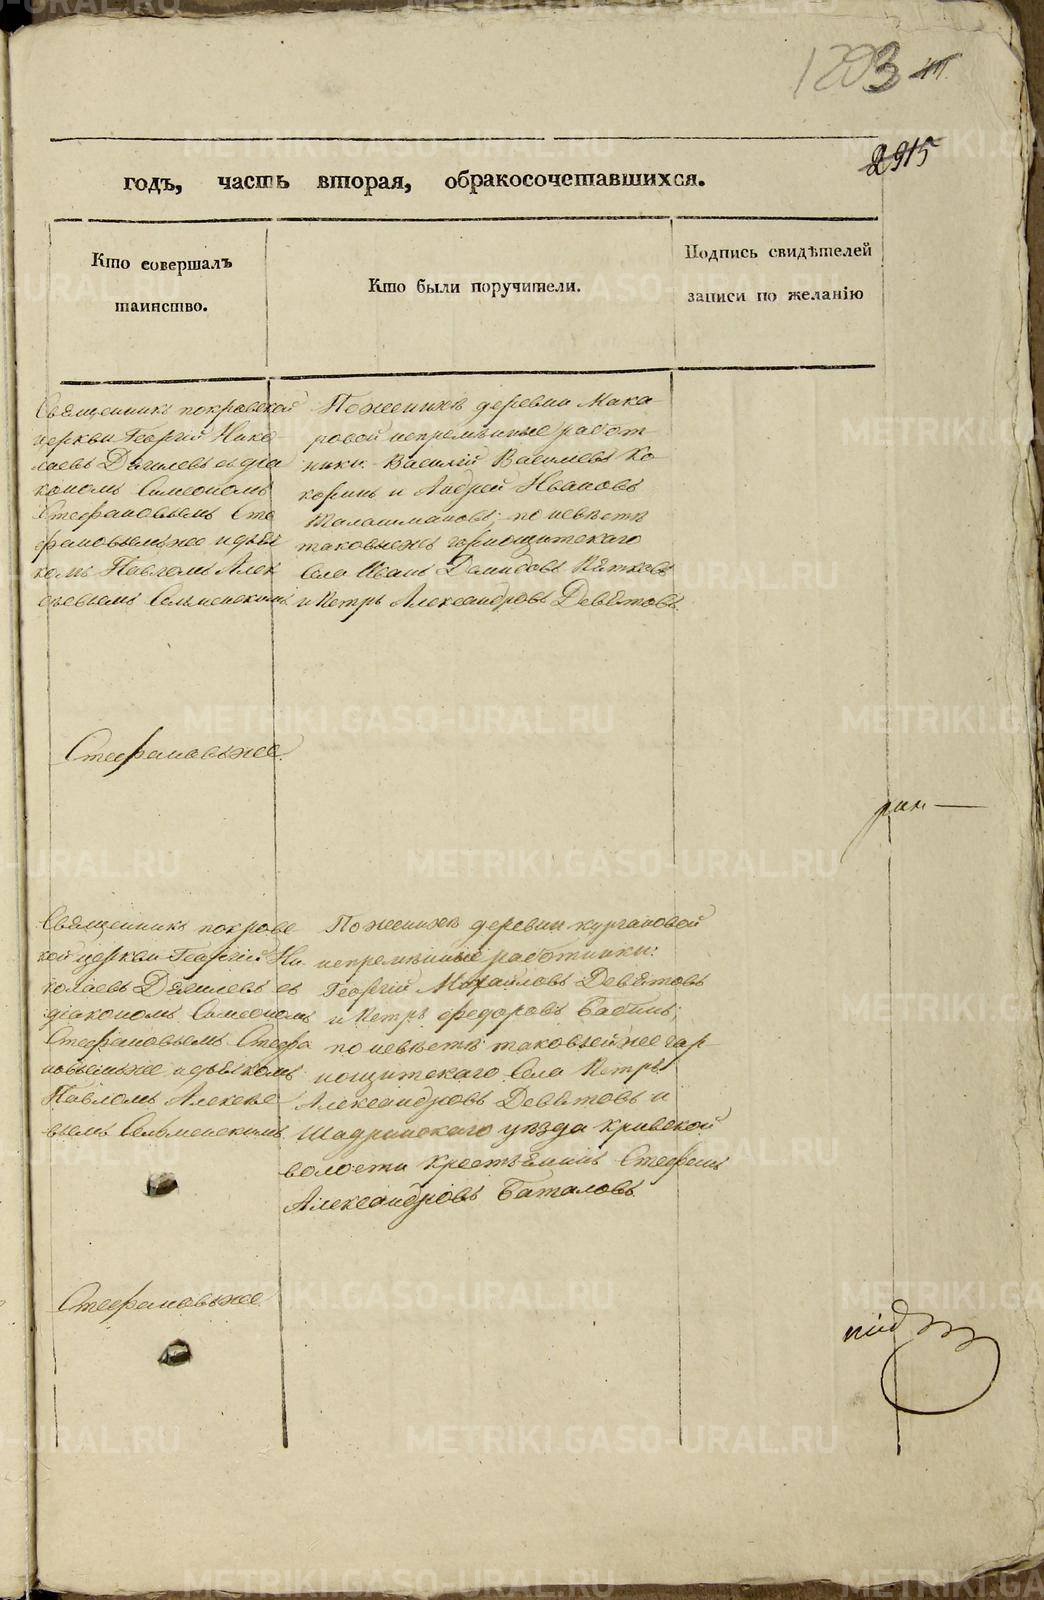 1203
2915
годъ, часть вторая, обракосочетавшихся.
Кто совершалъ
таинство.
Кто были поручители.
Подпись свидѣтелей
записи по желанію
Священникъ покровской
церкви Георгій Нико
лаевъ Дягилевъ съ діа
кономъ Симеономъ
Стефановымъ Сте
фановымъ же и дьяч
комъ Павломъ Алек
сѣевымъ Сельменскимъ
По женихѣ деревни Мака
ровой непремѣнные работ
ники Василій Васильевъ Ко
коринъ и Андрей Ивановъ
Талашмановъ; по невѣстѣ
таковыежъ горнощитскаго
Села Иванъ Демидовъ Пятковъ
и Петръ Александровъ Девятовъ.
Стефановъ же.
Священникъ покровс
кой церкви Георгій Ни
колаевъ Дягилевъ съ
діакономъ Симеономъ
Стефановымъ Стефа
новымъ же и дьячкомъ
Павломъ Алексѣе
вымъ Сельменскимъ
По женихѣ деревни кургановой
непремѣнные работники:
Георгій Михайловъ Девятовъ
и Петръ федоровъ Бабинъ;
по невѣстѣ таковый же гор
нощитскаго Села Петръ
Александровъ Девятовъ и
Шадринскаго уѣзда кривской
волости крестьянинъ Стефанъ
Александровъ Баталовъ.
Стефановъ же
METRIKI.GASO-URAL.RU